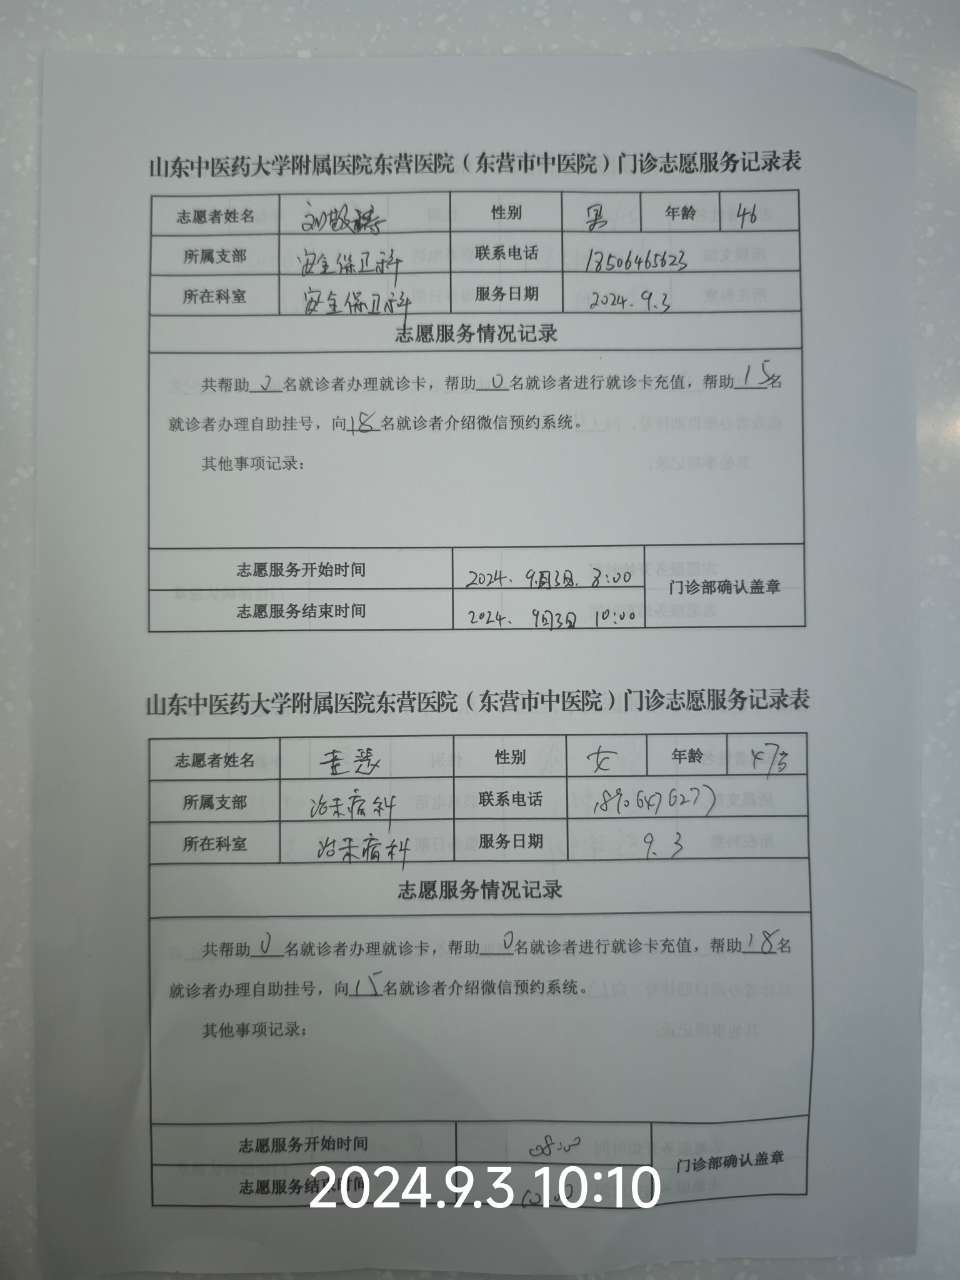 山东中医药大学附属医院东营医院（东营市中医院）门诊志愿服务记录表
志愿者姓名 刘敬涛 性别 男 年龄 46
所属支部 安全保卫科 联系电话 18506465623
所在科室 安全保卫科 服务日期 2024.9.3
志愿服务情况记录
共帮助 0 名就诊者办理就诊卡，帮助 0 名就诊者进行就诊卡充值，帮助 15 名
就诊者办理自助挂号，向 18 名就诊者介绍微信预约系统。
其他事项记录：
志愿服务开始时间 2024. 9月3日. 8:00
门诊部确认盖章
志愿服务结束时间 2024. 9月3日 10:00
山东中医药大学附属医院东营医院（东营市中医院）门诊志愿服务记录表
志愿者姓名 性别 女 年龄 47岁
所属支部 治未病科 联系电话
所在科室 治未病科 服务日期 9.3
志愿服务情况记录
共帮助 0 名就诊者办理就诊卡，帮助 0 名就诊者进行就诊卡充值，帮助 18 名
就诊者办理自助挂号，向 15 名就诊者介绍微信预约系统。
其他事项记录：
志愿服务开始时间 08:00
门诊部确认盖章
志愿服务结束时间 10:00
2024.9.3 10:10